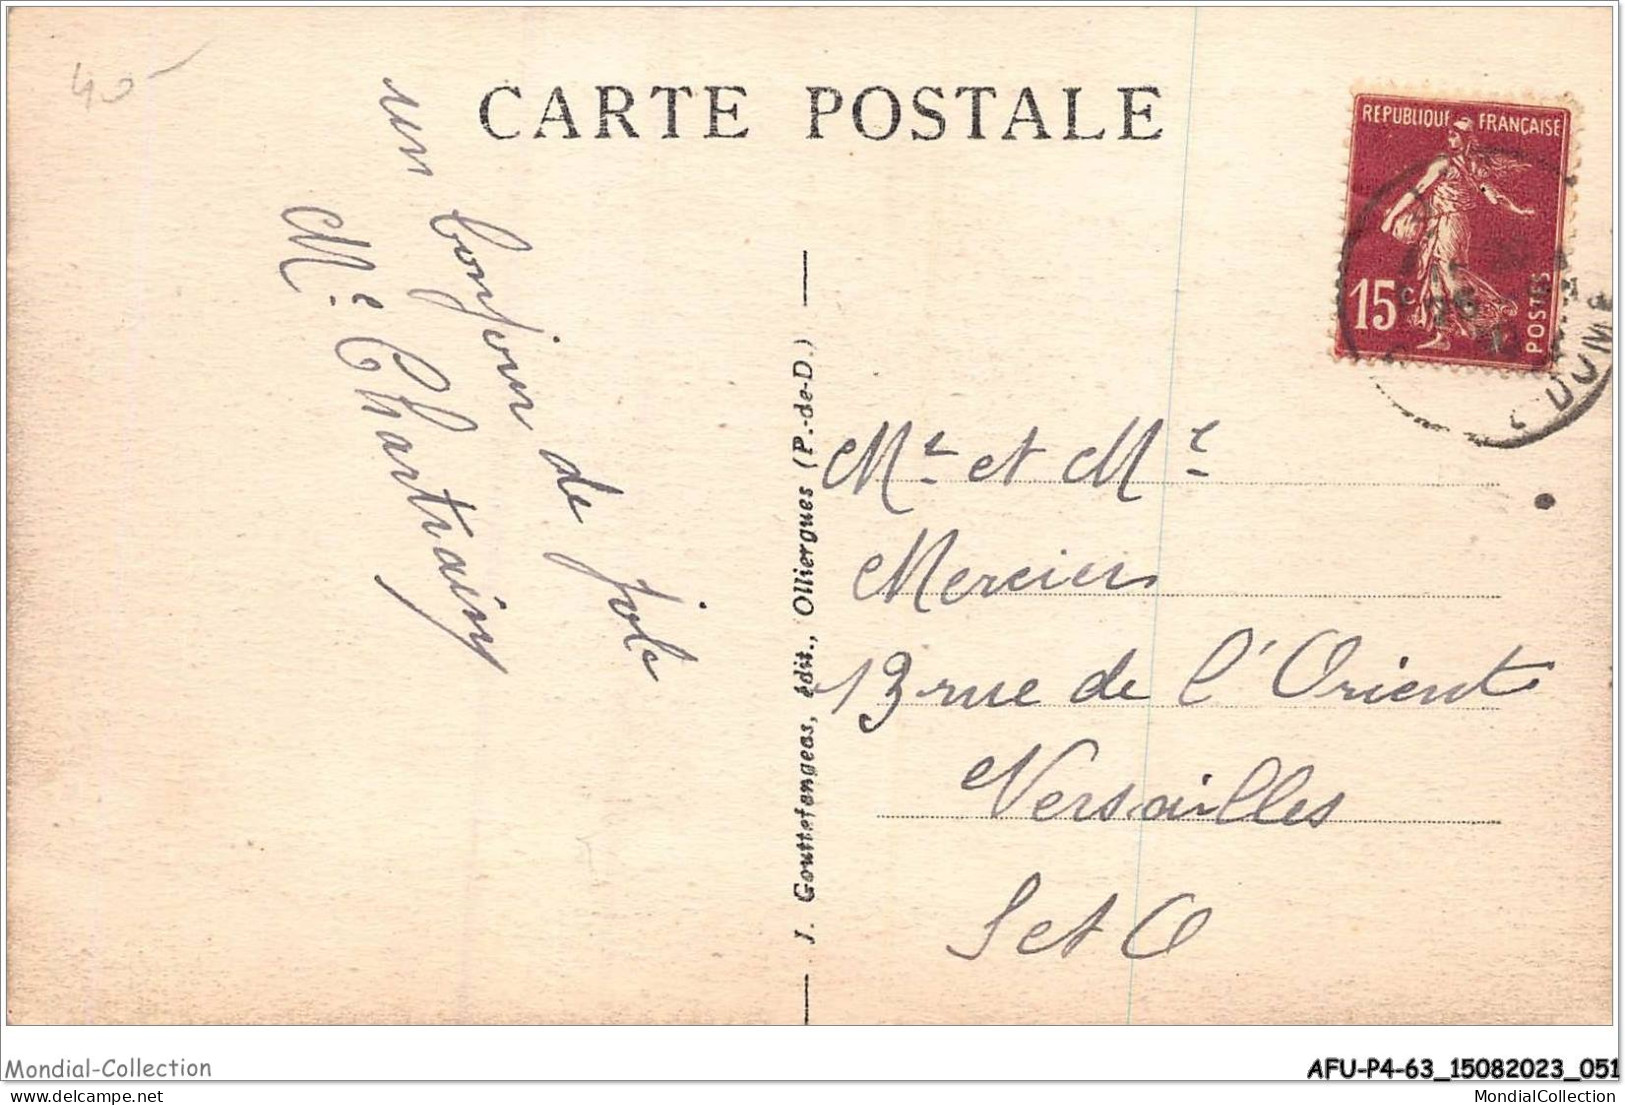 40
CARTE POSTALE
REPUBLIQUE FRANÇAISE
15c
POSTES
un bonjour de
Me Chartrain
J. Gouttefangeas, édit., Olliergues (P.-de-D.)
Mr et Me
Mercier
13 rue de l'Orient
Versailles
S et O
Mondial-Collection
AFU-P4-63_15082023_051
MondialCollection
MondialCollection